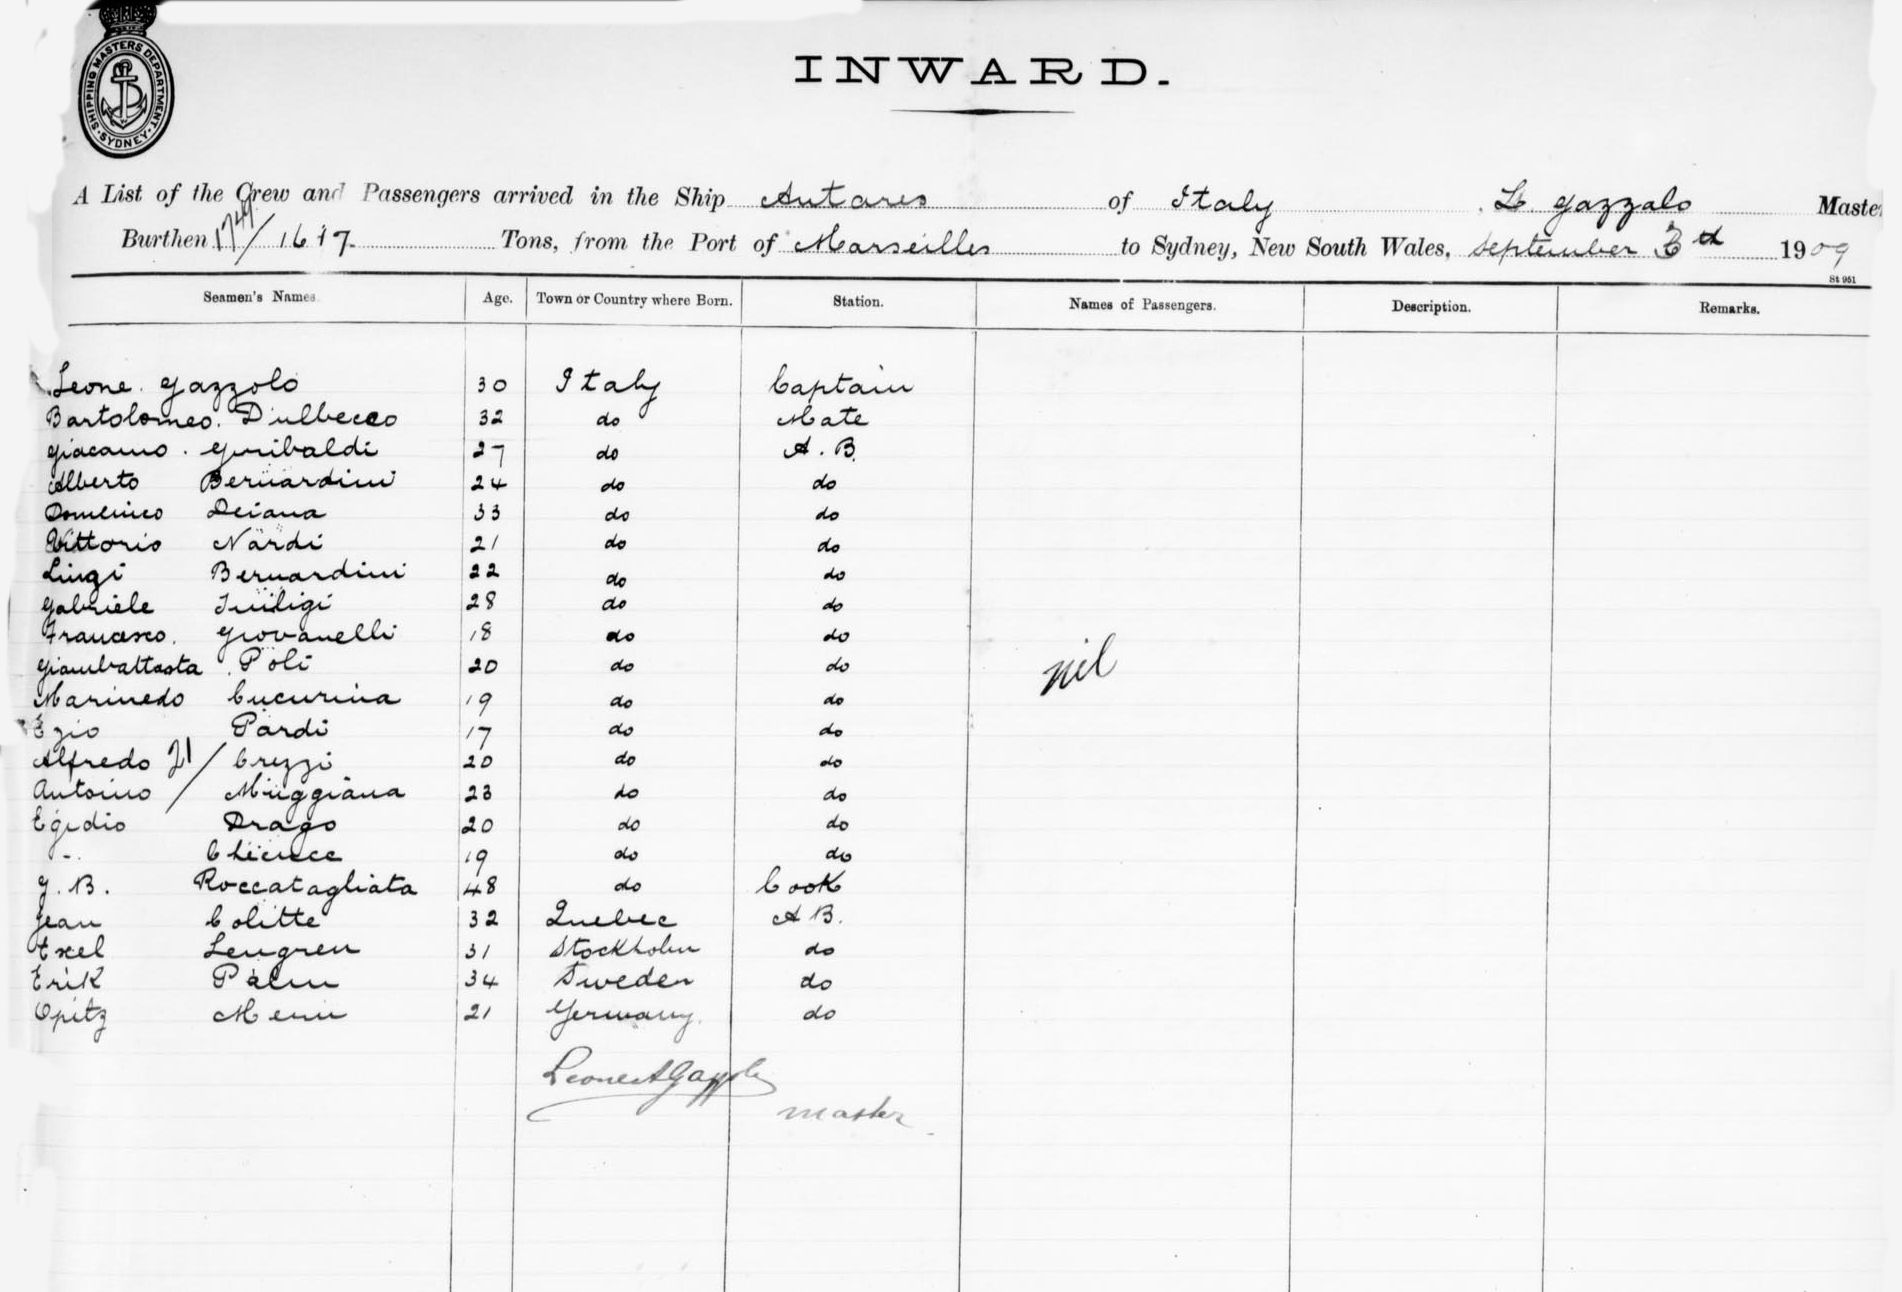 SHIPPING MASTERS DEPARTMENT
SYDNEY
INWARD.
A List of the Crew and Passengers arrived in the Ship Antares of Italy L. Gazzalo Master
Burthen 1749/1617 Tons, from the Port of Marseilles to Sydney, New South Wales, September 1909
St 951
Seamen's Names Age. Town or Country where Born. Station. Names of Passengers. Description. Remarks.
Leone Gazzolo 30 Italy Captain
Bartolomeo Dulbecco 32 do Mate
Giacomo Garibaldi 27 do A.B.
Alberto Bernardini 24 do do
Domenico Deiana 33 do do
Vittorio Nardi 21 do do
Luigi Bernardini 22 do do
Gabriele 28 do do
Francesco Giovanelli 18 do do
Giambattasta Poli 20 do do
nil
Marinedo Cucurina 19 do do
Ezio Pardi 17 do do
Alfredo 21/ Crezzi 20 do do
Antonio Muggiana 23 do do
Egidio Drago 20 do do
19 do do
G. B. Roccatagliata 48 do Cook
Jean Colitte 32 Quebec A B.
Axel Lengren 31 Stockholm do
Erik Palm 34 Sweden do
Opitz 21 Germany. do
master